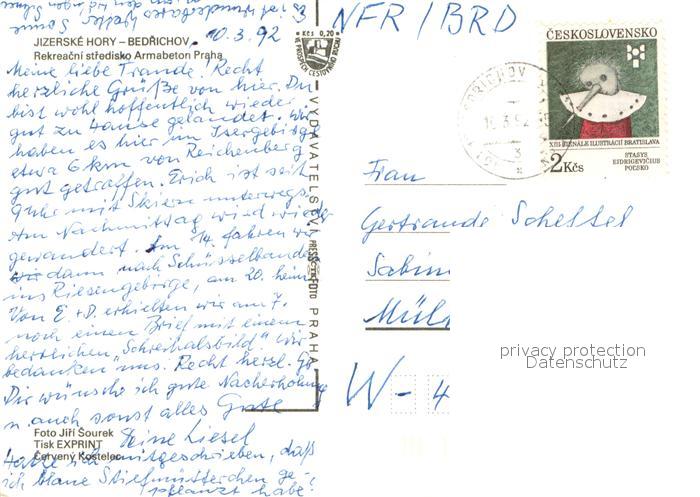 JIZERSKÉ HORY – BEDŘICHOV
10.3.92
Rekreační středisko Armabeton Praha
Meine liebe Traude! Recht
herzliche Grüße von hier. Du
bist wohl hoffentlich wieder
gut zu Hause gelandet. Wir
haben es hier im Isergebirge
etwa 6 km von Reichenberg
gut getroffen. Erich ist seit
9 Uhr mit Skiern unterwegs
Am Nachmittag wird wieder
gewandert. Am 14. fahren wir
wir dann nach Schüsselbauden
ins Riesengebirge, am 20. heim
Von E + D. erhielten wir am 7.
noch einen Brief mit einem
herrlichen „Schreibalsbild". Wir
bedanken uns. Recht herzl. Gr
Dir wünsche ich gute Nacherholung
u. auch sonst alles Gute
Deine Liesel
Foto Jiří Šourek
Tisk EXPRINT
Červený Kostelec
Hatte ich mitgeschrieben, daß
ich blaue Stiefmütterchen ge-
pflanzt habe!
Kčs 0,20
VYDAVATELSTVÍ PRESSFOTO PRAHA
NFR / BRD
ČESKOSLOVENSKO
XIII. BIENÁLE ILUSTRÁCIÍ BRATISLAVA
2 Kčs
STASYS
EIDRIGEVIČIUS
POĽSKO
Frau
Gertraude Scheffel
Sabin
Mül
W - 4
privacy protection
Datenschutz